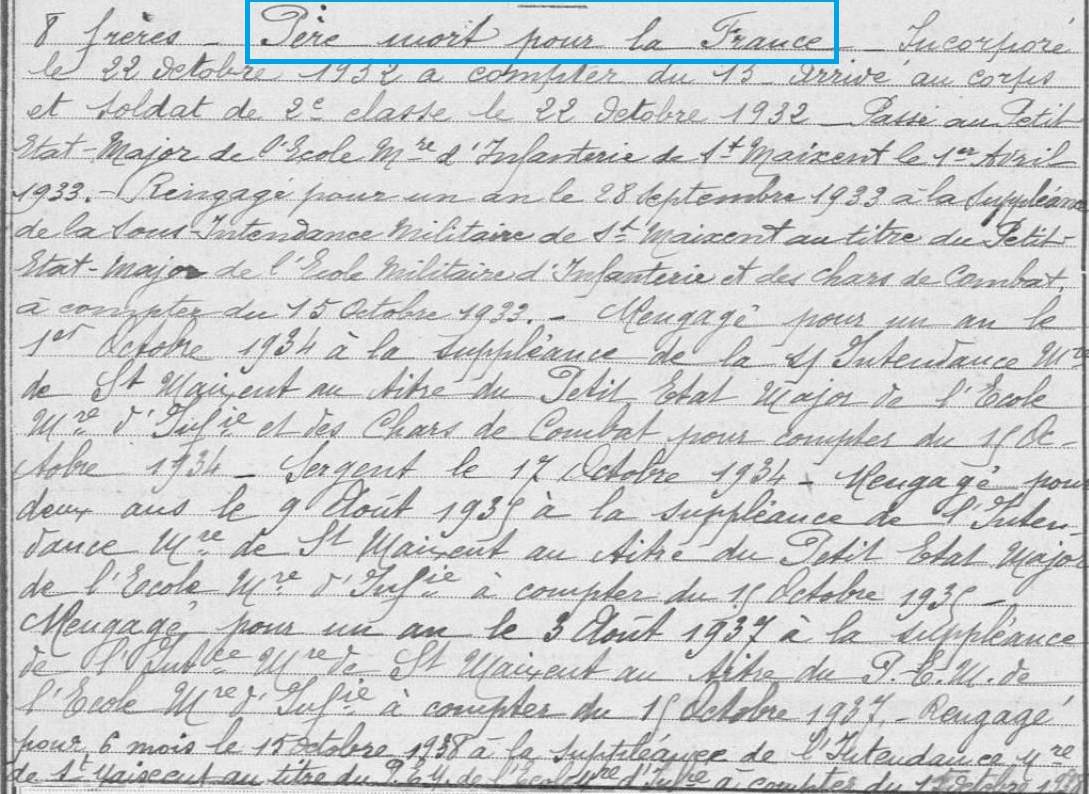 8 frères - Père mort pour la France - Incorporé
le 22 Octobre 1932 à compter du 15 Arrivé au corps
et soldat de 2e classe le 22 Octobre 1932 - Passé au Petit
Etat-Major de l'Ecole Mre d'Infanterie de St Maixent le 1er Avril
1933. - Rengagé pour un an le 28 Septembre 1933 à la suppléance
de la Sous-Intendance Militaire de St Maixent au titre du Petit
Etat-Major de l'Ecole Militaire d'Infanterie et des chars de Combat.
à compter du 15 Octobre 1933. - Rengagé pour un an le
1er Octobre 1934 à la suppléance de la S/Intendance Mre
de St Maixent au titre du Petit Etat Major de l'Ecole
Mre d'Infie et des Chars de Combat pour compter du 15 Oc-
tobre 1934 - Sergent le 17 Octobre 1934 - Rengagé pour
deux ans le 9 Août 1935 à la suppléance de l'Inten-
dance Mre de St Maixent au titre du Petit Etat Major
de l'Ecole Mre d'Infie à compter du 15 Octobre 1935 -
Rengagé pour un an le 3 Août 1937 à la suppléance
de l'Intce Mre de St Maixent au titre du P.E.M. de
l'Ecole Mre d'Infie à compter du 15 Octobre 1937. - Rengagé
pour 6 mois le 15 Octobre 1938 à la suppléance de l'Intendance Mre
de St Maixent au titre du P.E.M. de l'Ecole Mre d'Infre à compter du 15 Octobre 1938